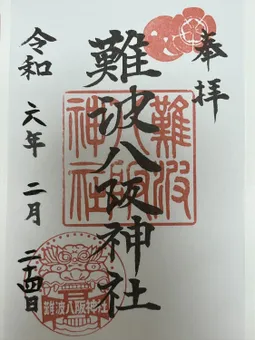 奉拝
難波八阪神社
難波
八阪
神社
令和六年二月二四日
難波八阪神社